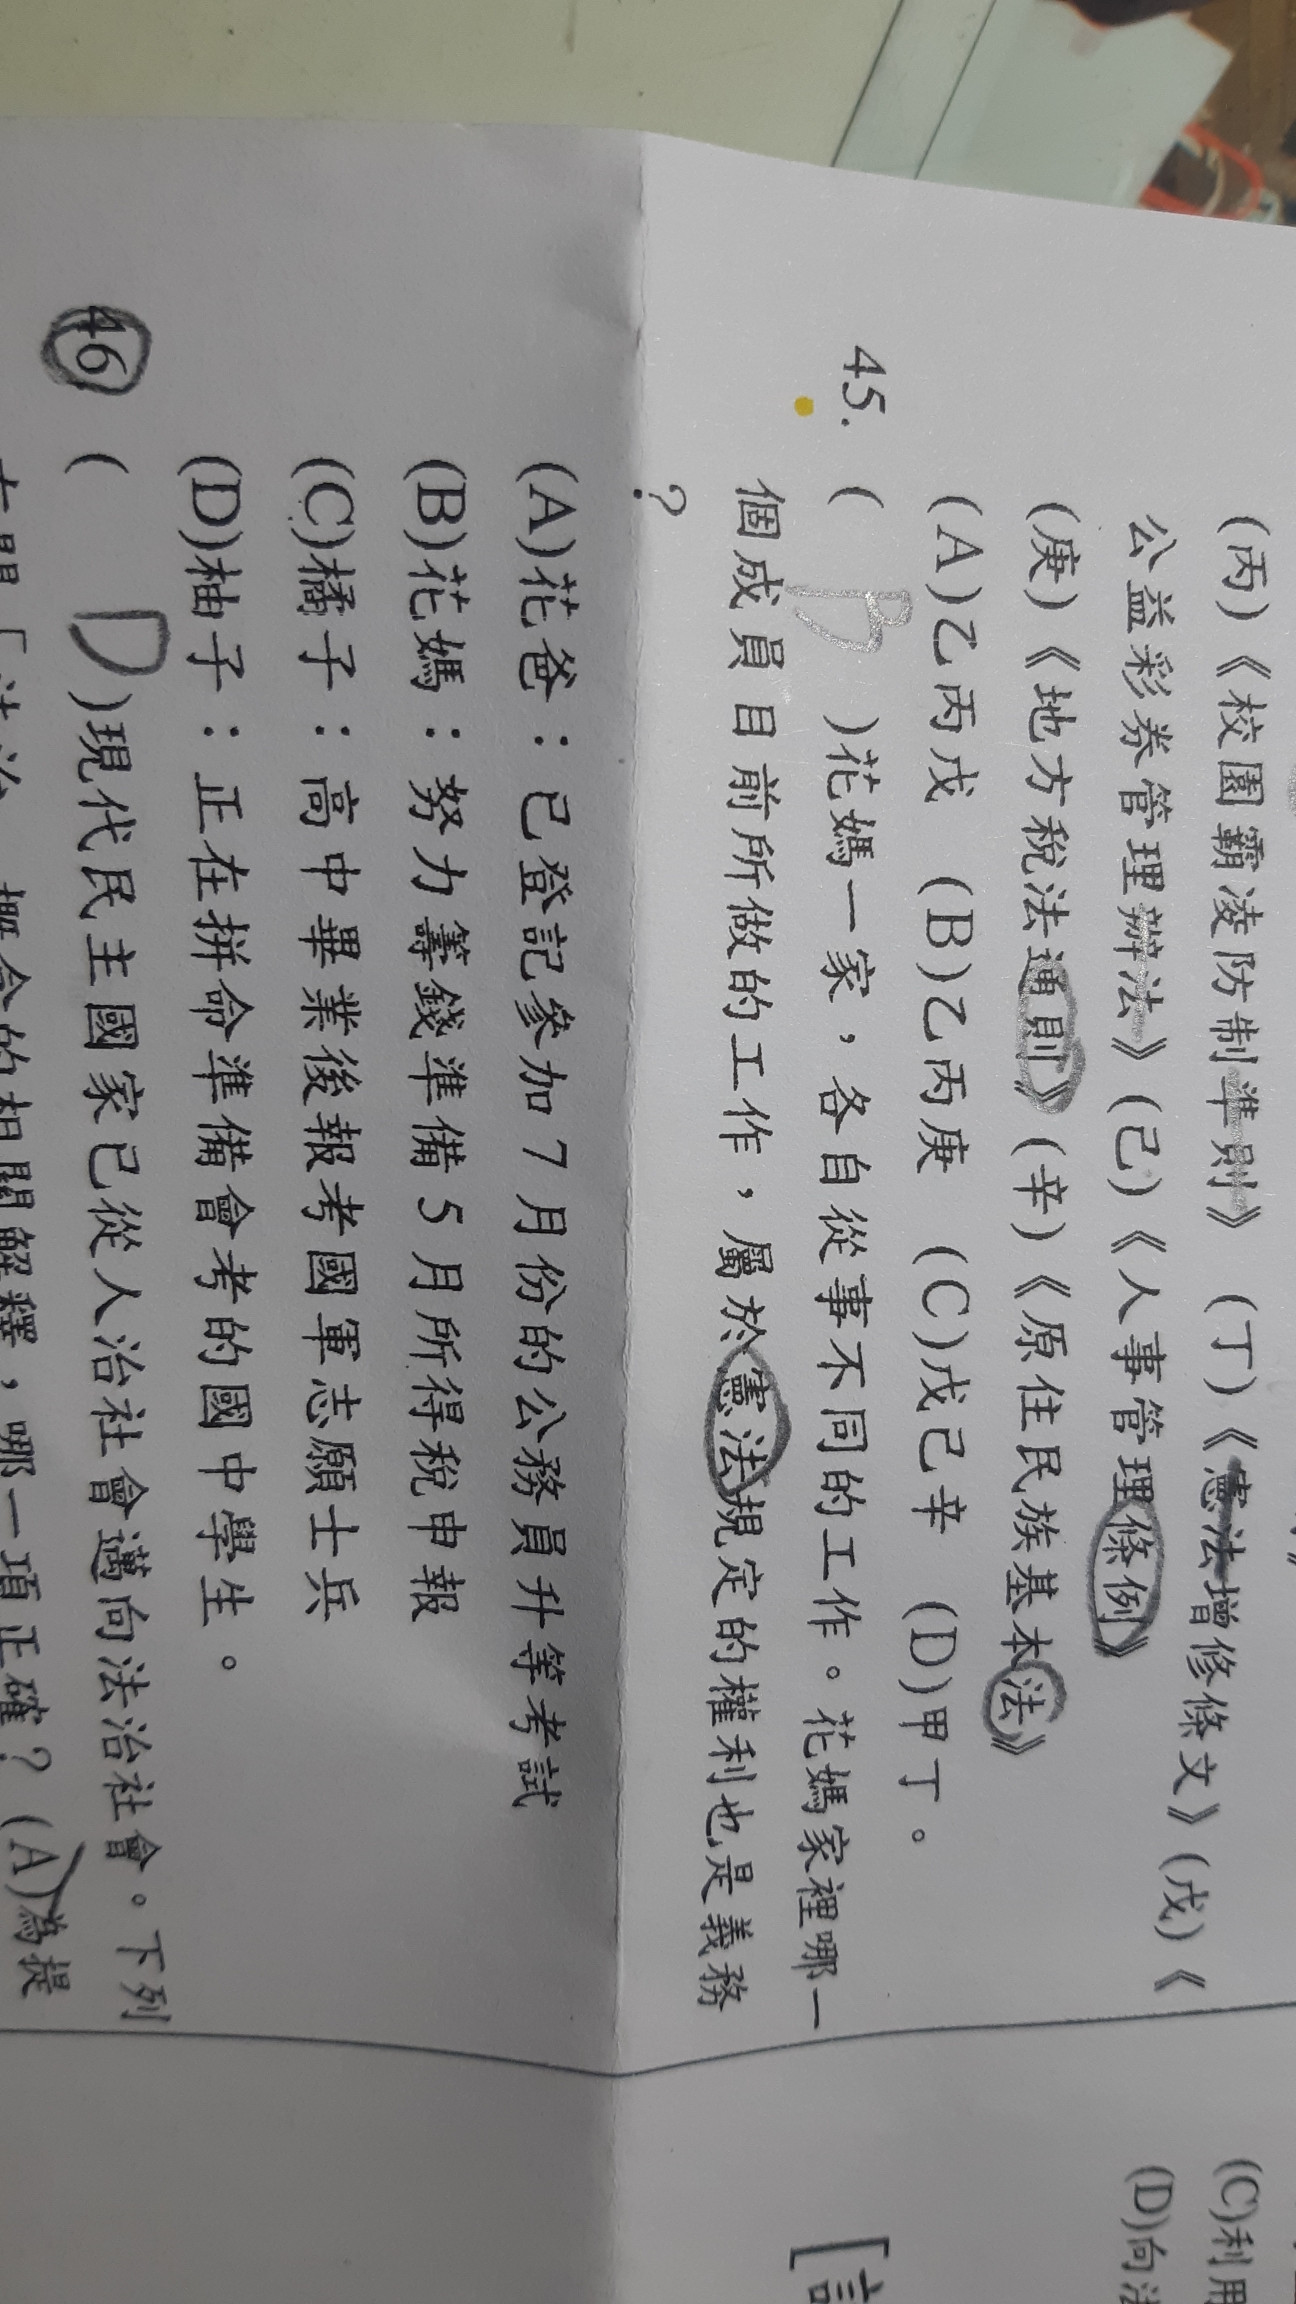 (丙)《校園霸凌防制準則》 (丁)《憲法增修條文》(戊)《
公益彩券管理辦法》(己)《人事管理條例》
(庚)《地方稅法通則》(辛)《原住民族基本法》
(A)乙丙戊 (B)乙丙庚 (C)戊己辛 (D)甲丁。
45. ( B )花媽一家，各自從事不同的工作。花媽家裡哪一
個成員目前所做的工作，屬於憲法規定的權利也是義務
？
(A)花爸：已登記參加7月份的公務員升等考試
(B)花媽：努力籌錢準備5月所得稅申報
(C)橘子：高中畢業後報考國軍志願士兵
(D)柚子：正在拼命準備會考的國中學生。
46 ( D )現代民主國家已從人治社會邁向法治社會。下列
有關「法治」概念的相關解釋，哪一項正確？(A)為提
(C)利用
(D)向法